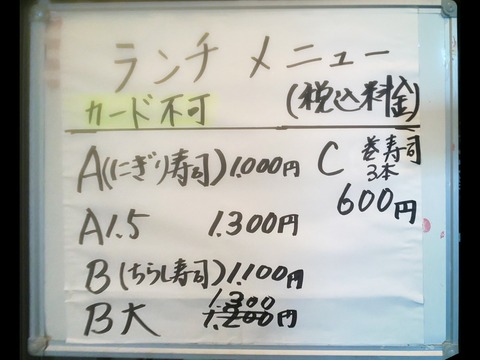 ランチ メニュー
カード不可 (税込料金)
A(にぎり寿司) 1.000円
A1.5 1.300円
B(ちらし寿司) 1.100円
B大 1.300
1.200円
C 巻寿司
3本
600円